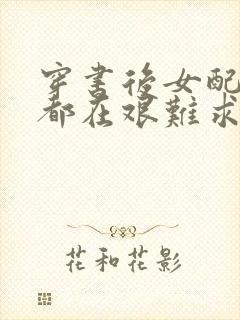 穿書後女配
都在艰難求
花和花影